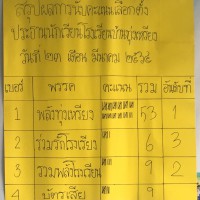 สรุปผลการนับคะแนนเลือกตั้ง
ประธานนักเรียนโรงเรียนบ้านทุ่งเหรียง
วันที่ ๒๓ เดือน มีนาคม ๒๕๖๔
เบอร์ พรรค คะแนน รวม อันดับที่
1 พลังทุ่งเหรียง 53 1
2 ร่วมรักโรงเรียง 6 3
3 รวมพลังโรงเรียน 9 2
4 บัตรเสีย 9